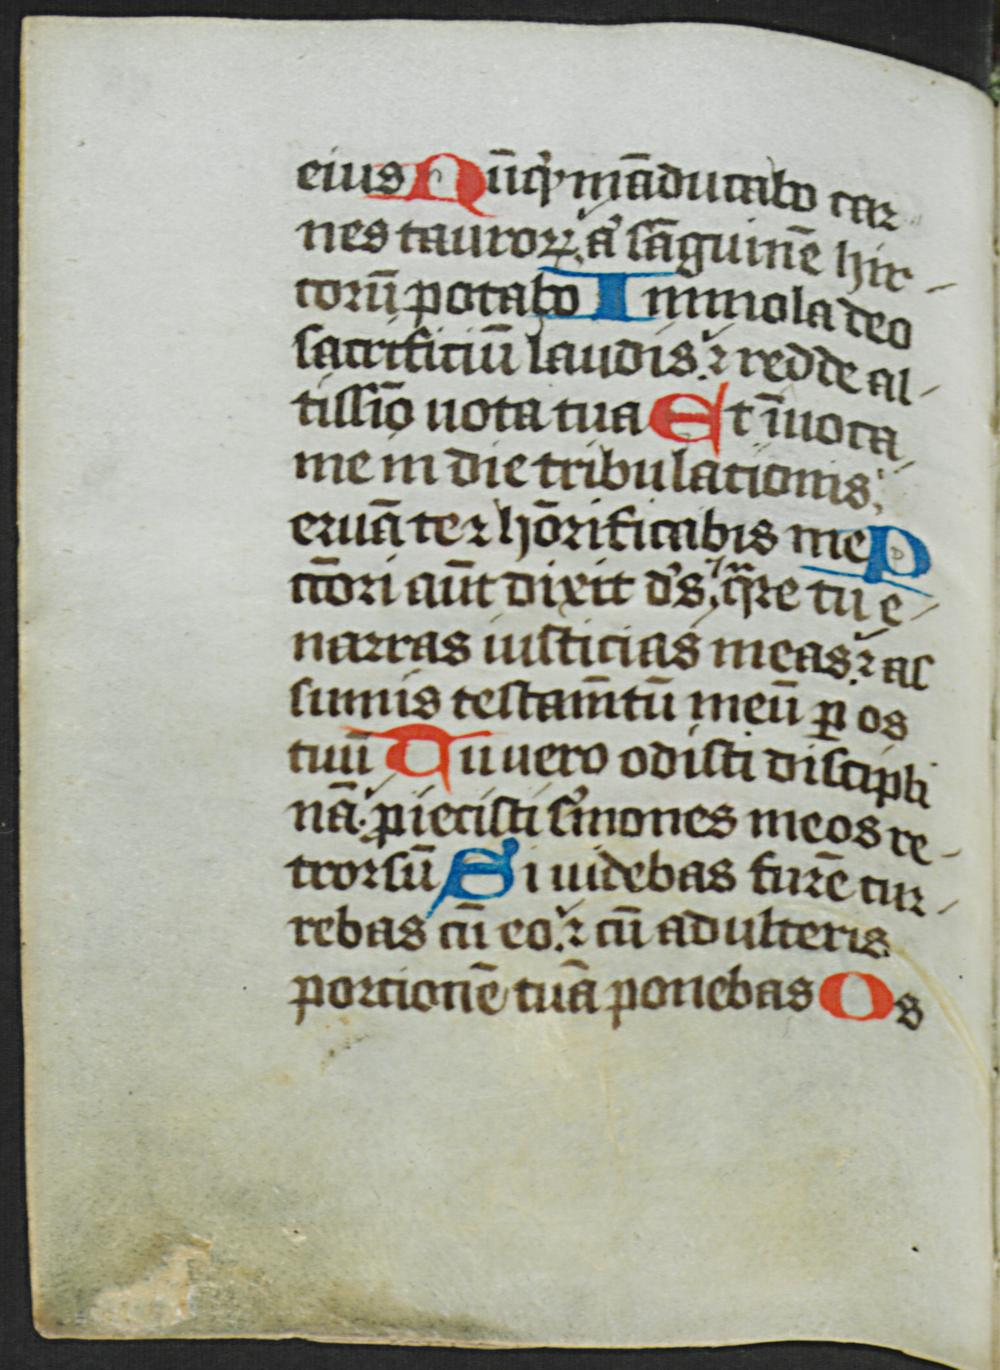 eius Nūq̄ māducabo car
nes tauroꝝ aꝰ sāguinē hir-
corū potabo Immola deo
sacrificiū laudis ⁊ redde al-
tissīo uota tua Et īuoca
me in die tribulationis
eruā te ⁊ hōrificabis me P
ctōri aūt dixit dꝰs q̄re tu e-
narras iusticias meas ⁊ as
sumis testam̄tū meū ꝑ os
tuū Tu vero odisti discipli
nā ꝓiecisti sꝰmones meos re-
trorsū Si uidebas furē cur-
rebas cū eo ⁊ cū adulteris
portionē tuā ponebas Os